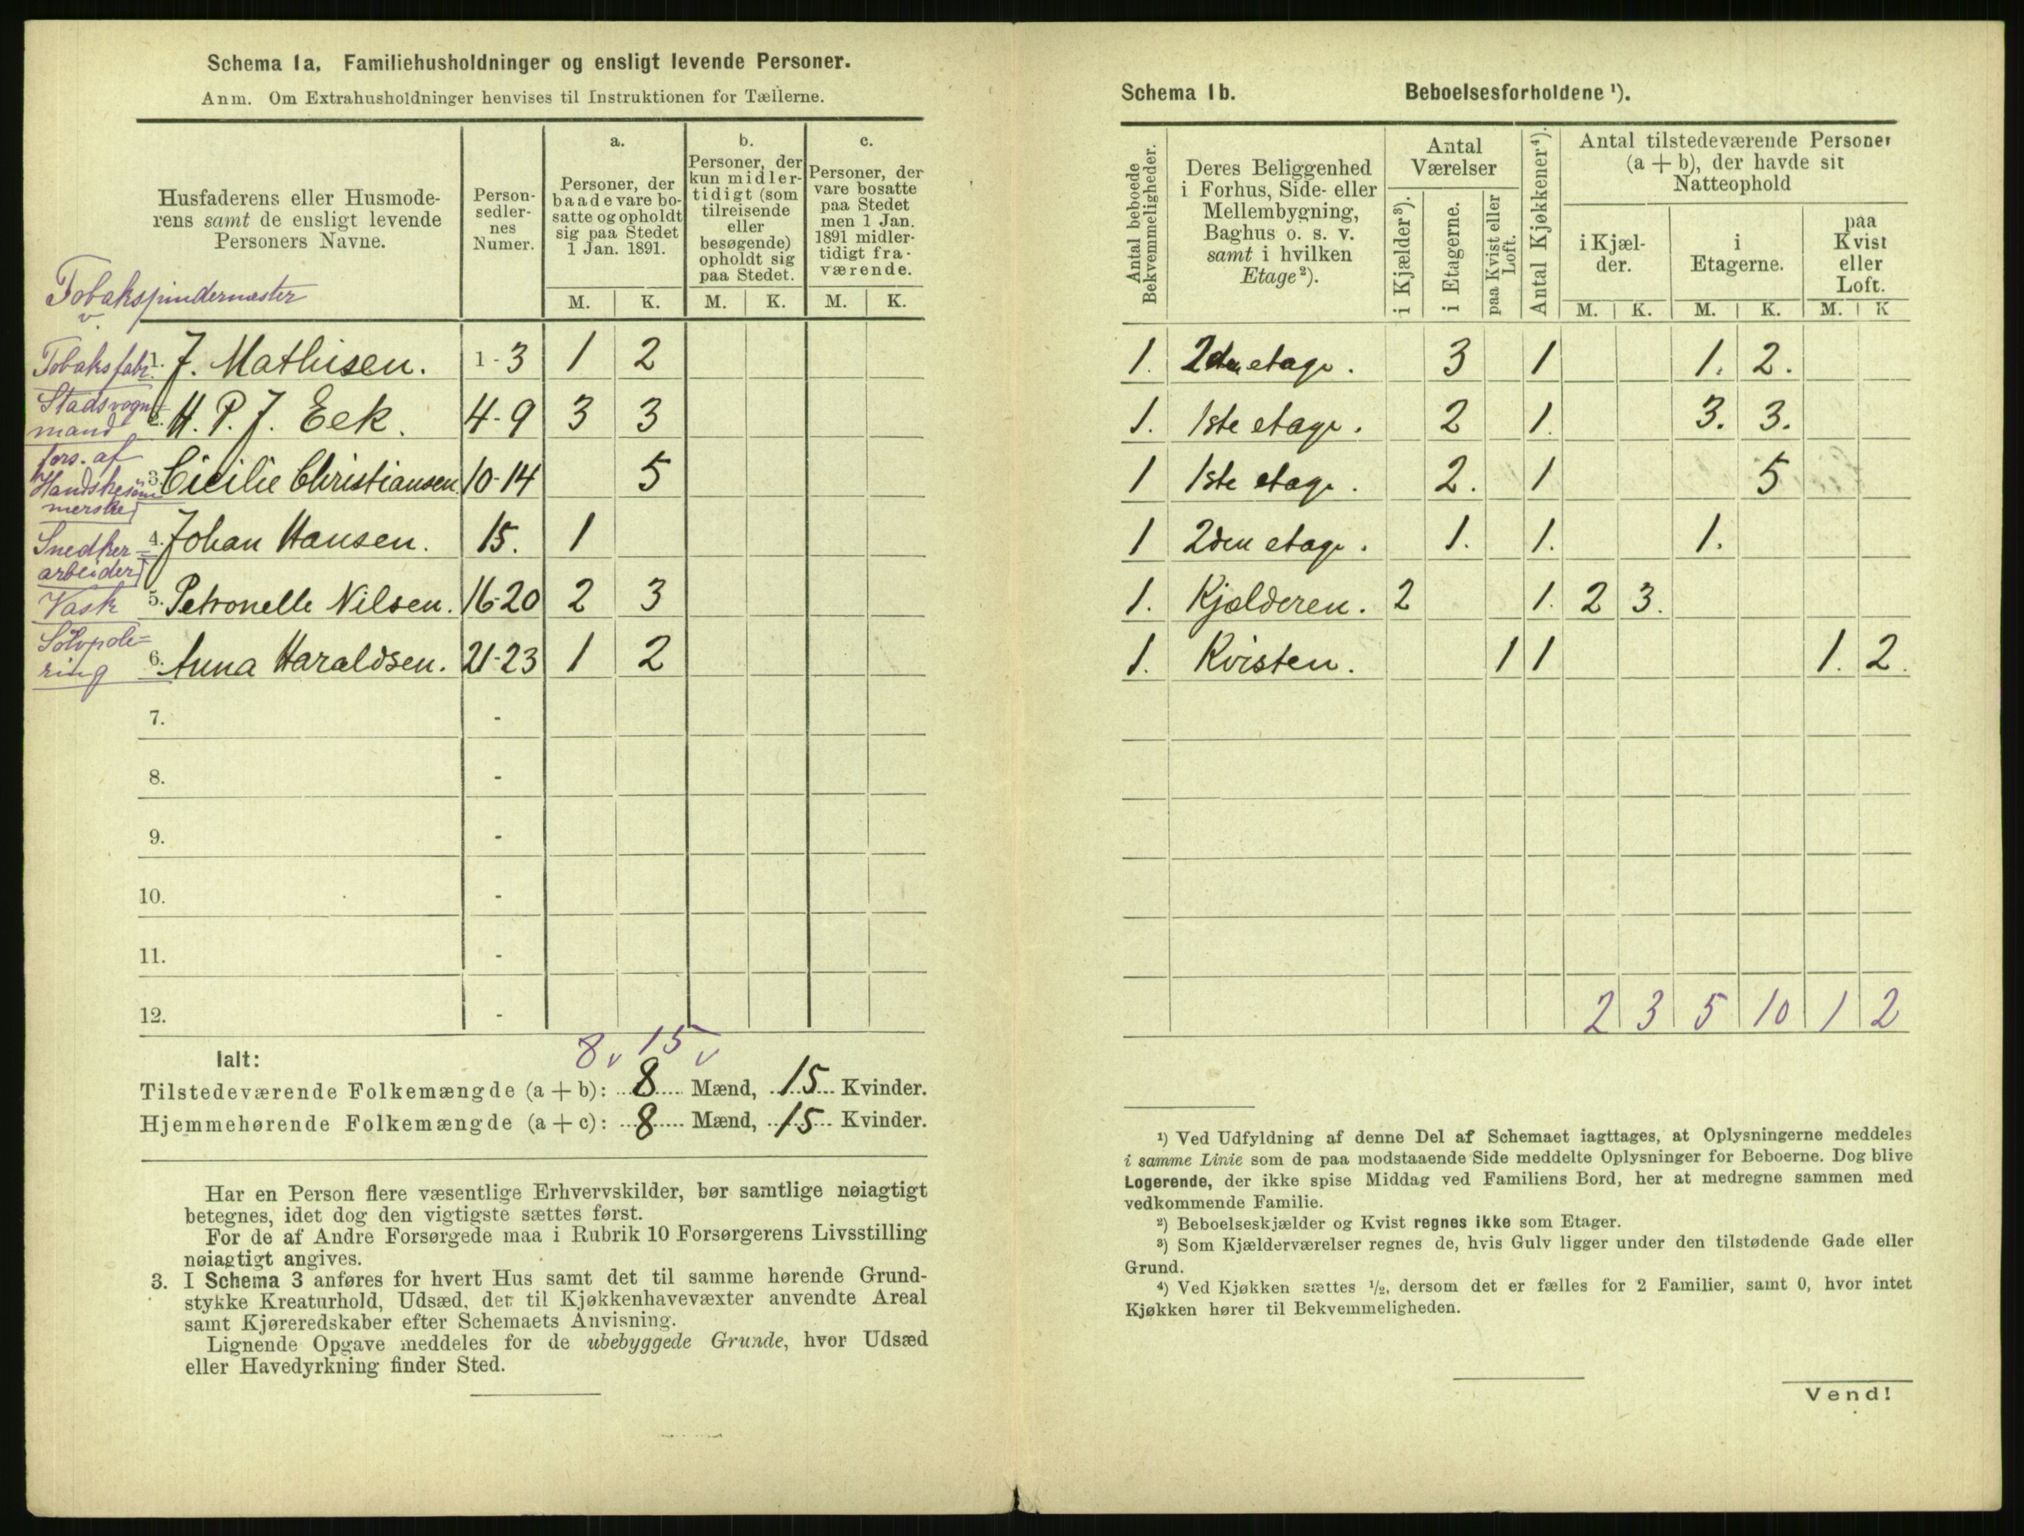 Schema 1a. Familiehusholdninger og ensligt levende Personer.
Anm. Om Extrahusholdninger henvises til Instruktionen for Tællerne.
Husfaderens eller Husmode-
rens samt de ensligt levende
Personers Navne.
Person-
sedler-
nes
Numer.
a.
Personer, der
baade vare bo-
satte og opholdt
sig paa Stedet
1 Jan. 1891.
b.
Personer, der
kun midler-
tidigt (som
tilreisende
eller
besøgende)
opholdt sig
paa Stedet.
c.
Personer, der
vare bosatte
paa Stedet
men 1 Jan.
1891 midler-
tidigt fra-
værende.
M. K. M. K. M. K.
Tobakspindermester
v.
Tobaksfabr. 1. J. Mathisen. 1-3 1 2
Stadsvogn-
mand 2. H. P. J. Eek. 4-9 3 3
fors. af
Handskesøm
merske 3. Cicilie Christiansen 10-14 5
Snedker=
arbeider 4. Johan Hansen. 15. 1
Vask 5. Petronelle Nilsen. 16-20 2 3
Sölvpole=
ring 6. Anna Haraldsen. 21-23 1 2
7. -
8. -
9. -
10. -
11. -
12. -
8 v 15 v
Ialt:
Tilstedeværende Folkemængde (a + b): 8 Mænd, 15 Kvinder.
Hjemmehørende Folkemængde (a + c): 8 Mænd, 15 Kvinder.
Har en Person flere væsentlige Erhvervskilder, bør samtlige nøiagtigt
betegnes, idet dog den vigtigste sættes først.
For de af Andre Forsørgede maa i Rubrik 10 Forsørgerens Livsstilling
nøiagtigt angives.
3. I Schema 3 anføres for hvert Hus samt det til samme hørende Grund-
stykke Kreaturhold, Udsæd, der til Kjøkkenhavevæxter anvendte Areal
samt Kjøreredskaber efter Schemaets Anvisning.
Lignende Opgave meddeles for de ubebyggede Grunde, hvor Udsæd
eller Havedyrkning finder Sted.
Schema 1b. Beboelsesforholdene ¹).
Antal beboede
Bekvemmeligheder.
Deres Beliggenhed
i Forhus, Side- eller
Mellembygning,
Baghus o. s. v.
samt i hvilken
Etage ²).
Antal
Værelser
i Kjælder ³).
i Etagerne.
paa Kvist eller
Loft.
Antal Kjøkkener ⁴).
Antal tilstedeværende Personer
(a + b), der havde sit
Natteophold
i Kjæl-
der.
i
Etagerne.
paa
Kvist
eller
Loft.
M. K. M. K. M. K
1. 2den etage. 3 1 1. 2.
1. 1ste etage. 2 1. 3. 3.
1 1ste etage. 2. 1 5
1 2den etage. 1. 1. 1.
1. Kjælderen. 2 1. 2 3.
1. Kvisten. 1 1 1. 2.
2 3 5 10 1 2
¹) Ved Udfyldning af denne Del af Schemaet iagttages, at Oplysningerne meddeles
i samme Linie som de paa modstaaende Side meddelte Oplysninger for Beboerne. Dog blive
Logerende, der ikke spise Middag ved Familiens Bord, her at medregne sammen med
vedkommende Familie.
²) Beboelseskjælder og Kvist regnes ikke som Etager.
³) Som Kjælderværelser regnes de, hvis Gulv ligger under den tilstødende Gade eller
Grund.
⁴) Ved Kjøkken sættes ½, dersom det er fælles for 2 Familier, samt 0, hvor intet
Kjøkken hører til Bekvemmeligheden.
Vend!